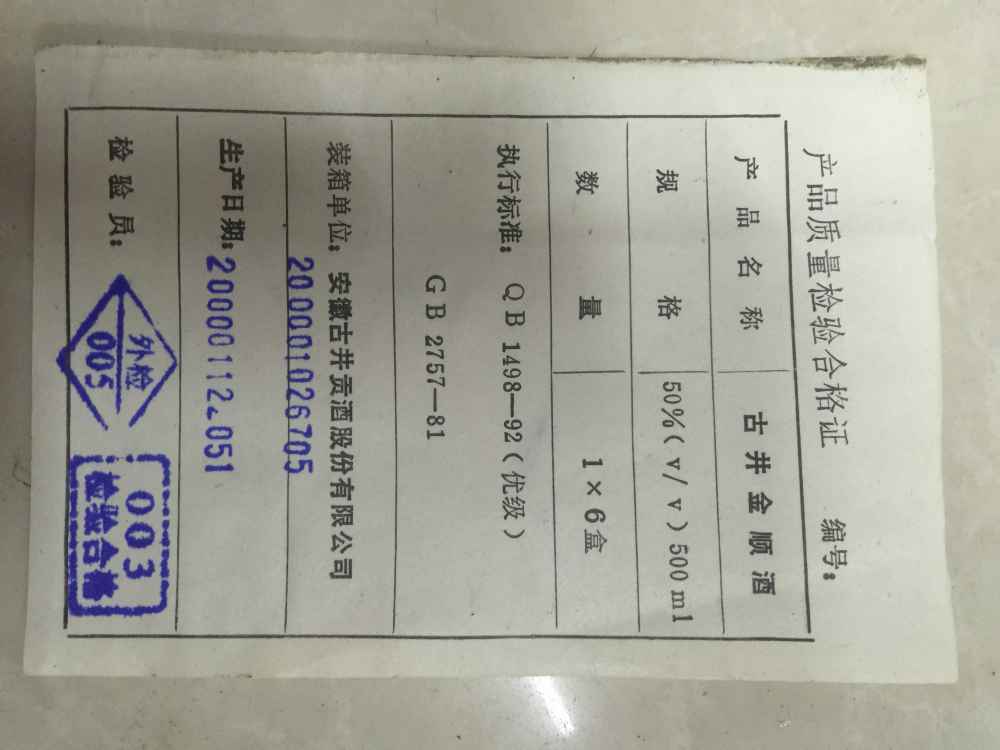 产品质量检验合格证 编号:
产品名称 古井金顺酒
规格 50%(v/v)500ml
数量 1×6盒
执行标准: QB 1498—92(优级)
GB 2757—81
装箱单位: 安徽古井贡酒股份有限公司
200001026705
生产日期: 20000112.051
检验员:
外检
005
003
检验合格